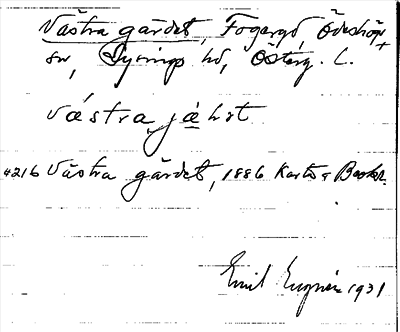 Västra gärdet, Fogargd, Ödeshögs
sn, Lysings hd, Österg. L.
västra jä̱ḥst
4216 Västra gärdet, 1886 Karta & Beskr.
Emil 1931